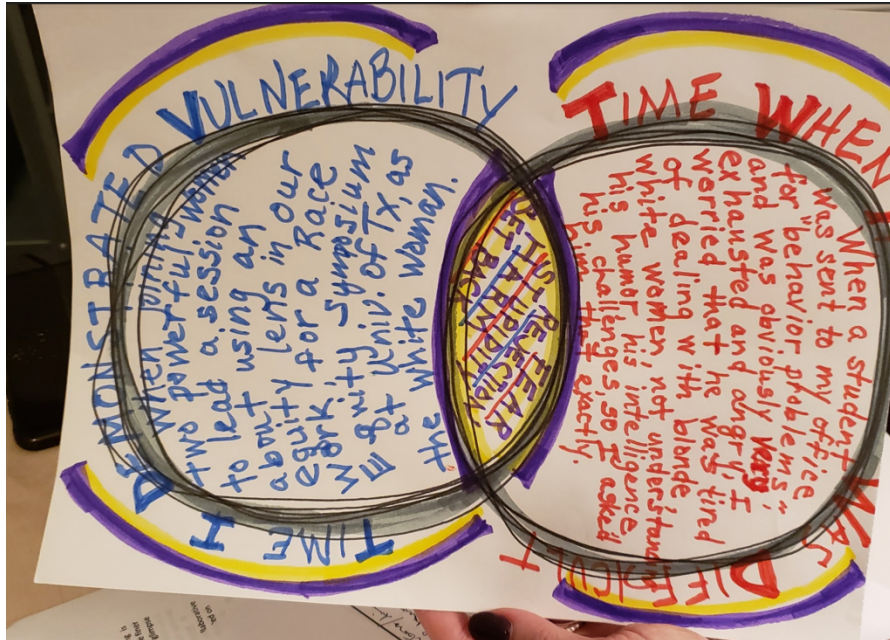 TIME I
DEMONSTRATED
VULNERABILITY
When joining 2 women
two powerful
to lead a session
about using an
equity lens in our
work for a Race
Equity Symposium
at Univ. of Tx, as
the white woman.
TIME WHEN I
WAS
DIFFICULT
When a student
was sent to my office
for "behavior problems",
and was obviously very
exhausted and angry. I
worried that he was tired
of dealing with blonde,
white women, not understanding
his humor, his intelligence,
his challenges, so I asked
him, they exactly.
FEAR
REJECTION
STUPIDITY
HARM
SET BACK